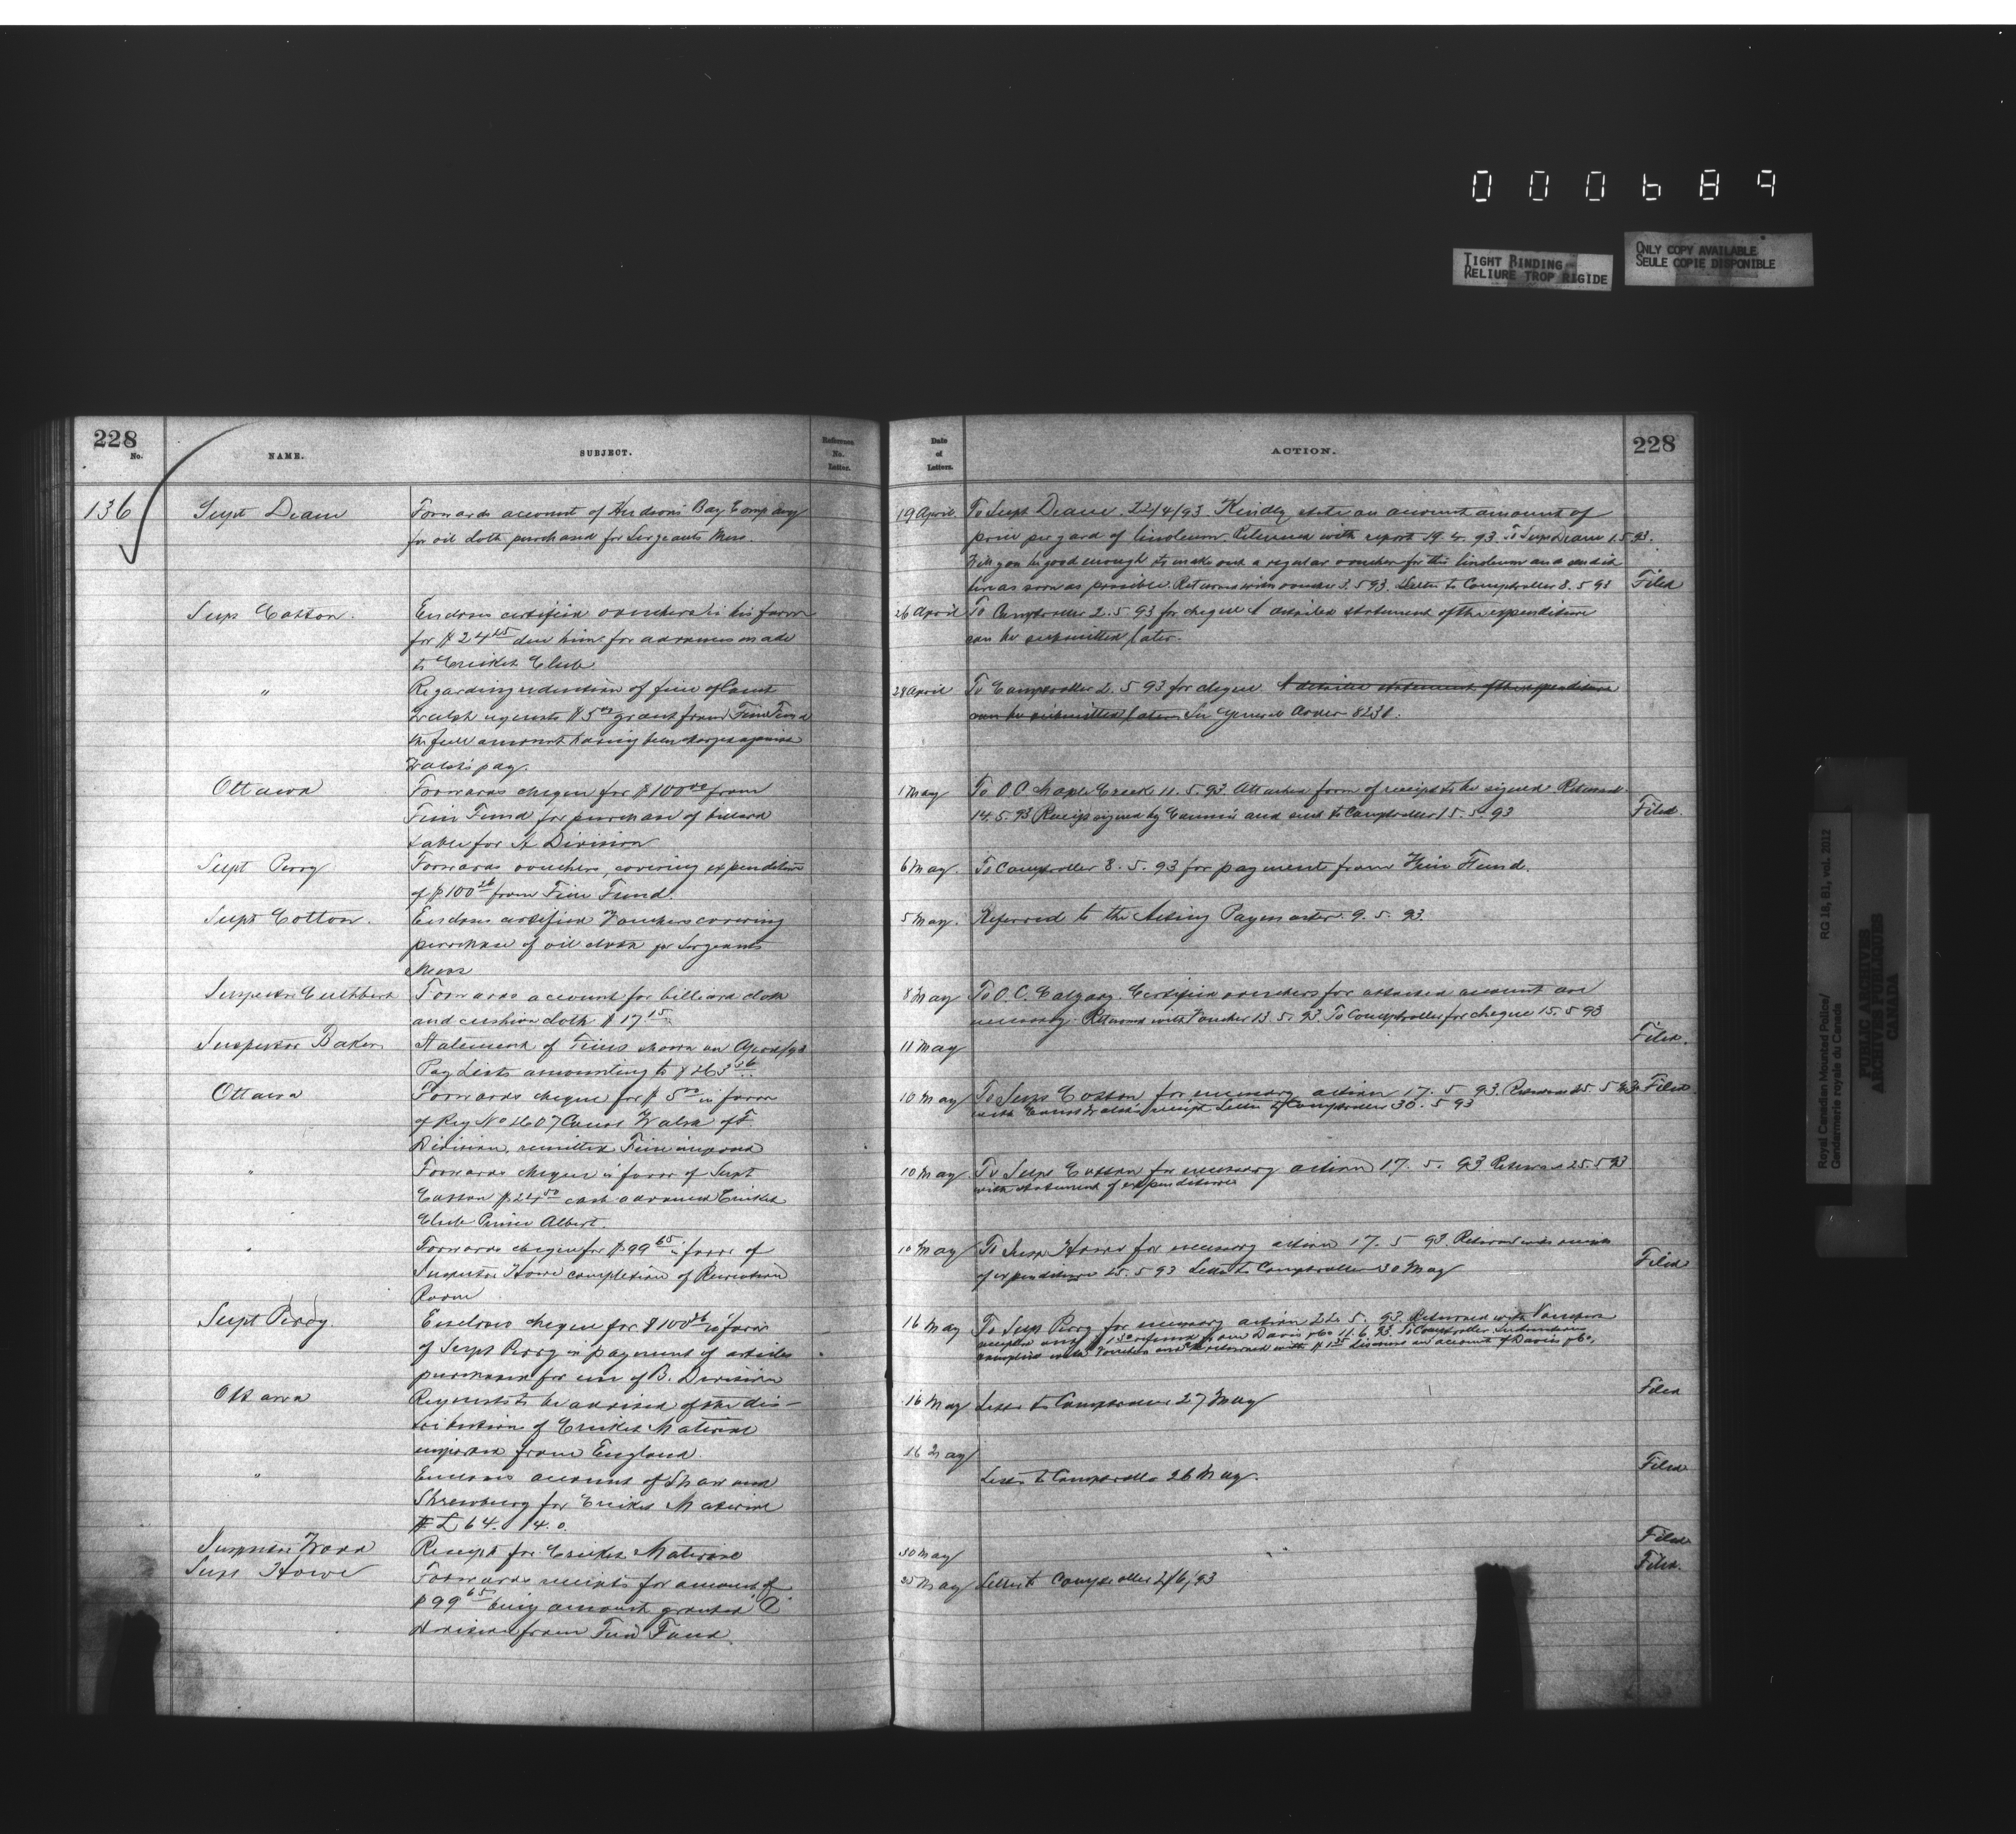 000689
TIGHT BINDING
RELIURE TROP RIGIDE
ONLY COPY AVAILABLE
SEULE COPIE DISPONIBLE
228
No.
NAME.
SUBJECT.
Reference
No.
Letter.
136
Supt Deane
Forwards account of Hudson's Bay Company
for oil cloth purchased for Sergeants Mess.
Supt Cotton.
Encloses certified vouchers in his favor
for $24 due him for advances made
to Cricket Club
"
Regarding reduction of fine of Const
Walsh requests $5 00 grant from Fine Fund
the full amount having been charged against
Walsh's pay.
Ottawa
Forwards cheque for $100 00 from
Fine Fund for purchase of billiard
table for A Division
Supt Perry
Forwards vouchers, covering expenditure
of $100 26 from Fine Fund.
Supt Cotton.
Encloses certified Vouchers covering
purchase of oil cloth for Sergeants
Mess
Inspector Cuthbert
Forwards account for billiard cloth
and cushion cloth $17.15
Inspector Baker
Statement of Fines shown on April/93
Pay Lists amounting to $263 56
Ottawa
Forwards cheque for $5 00 in favor
of Reg No 2607 Const Walsh of F.
Division, remitted Fine imposed
"
Forwards cheque in favor of Supt
Cotton $24 50 cash advanced Cricket
Club Prince Albert.
"
Forwards cheque for $99 65 in favor of
Inspector Howe completion of Recreation
Room
Supt Perry
Encloses cheque for $100 26 in favor
of Supt Perry in payment of articles
purchased for use of B. Division
Ottawa
Requests to be advised of the dis-
tribution of Cricket Material
imported from England.
"
Encloses account of Shaw and
Shrewsbury for Cricket Material
£64.14.0.
Inspector Wood
Receipt for Cricket Material
Insp Howe
Forwards receipts for amount of
$99 65 being amount granted "C"
Division from Fine Fund.
Date
of
Letters.
ACTION.
228
19 April
To Supt Deane. 22/4/93. Kindly state on account amount of
price per yard of linoleum. Returned with report 29.4.93. To Supt Deane 1.5.93.
Will you be good enough to make out a regular voucher for this linoleum and send it
here as soon as possible. Returned with voucher 3.5.93. Letter to Comptroller 8.5.93
Filed
26 April
To Comptroller 2.5.93 for cheque A detailed statement of the expenditure
can be submitted later.
28 April
To Comptroller 2.5.93 for cheque. A detailed statement of the expenditure
can be submitted later. See General Order 8231.
1 May
To O.C. Maple Creek 11.5.93. Attached form of receipt to be signed. Returned
14.5.93 Receipt signed by and sent to Comptroller 15.5.93
Filed.
6 May.
To Comptroller 8.5.93 for payment from Fine Fund.
5 May.
Referred to the Acting Paymaster. 9.5.93.
8 May
To O.C. Calgary. Certified vouchers for attached account are
necessary. Returned with Voucher 13.5.93. To Comptroller for cheque 15.5.93
Filed.
11 May
10 May
To Supt Cotton for necessary action 17.5.93. Returned 25.5.93
Filed
with Const Walsh's receipt Letter to Comptroller 30.5.93
10 May
To Supt Cotton for necessary action 17.5.93. Returned 25.5.93
with statement of expenditure
10 May
To Insp Howe for necessary action 17.5.93. Returned with receipts
of expenditure 25.5.93 Letter to Comptroller 30 May
Filed
16 May
To Supt Perry for necessary action 22.5.93. Returned with Vouchers
receipted and $1 refund from Davis & Co 11.6.93. To Comptroller
receipted with Voucher and returned with $1 on account of Davis & Co.
Filed
16 May
Letter to Comptroller 27 May
16 May
Letter to Comptroller 26 May.
Filed
30 May
Filed
Letter to Comptroller 2/6/93
Filed.
Royal Canadian Mounted Police/
Gendarmerie royale du Canada
RG 18, B1, vol. 2012
PUBLIC ARCHIVES
ARCHIVES PUBLIQUES
CANADA